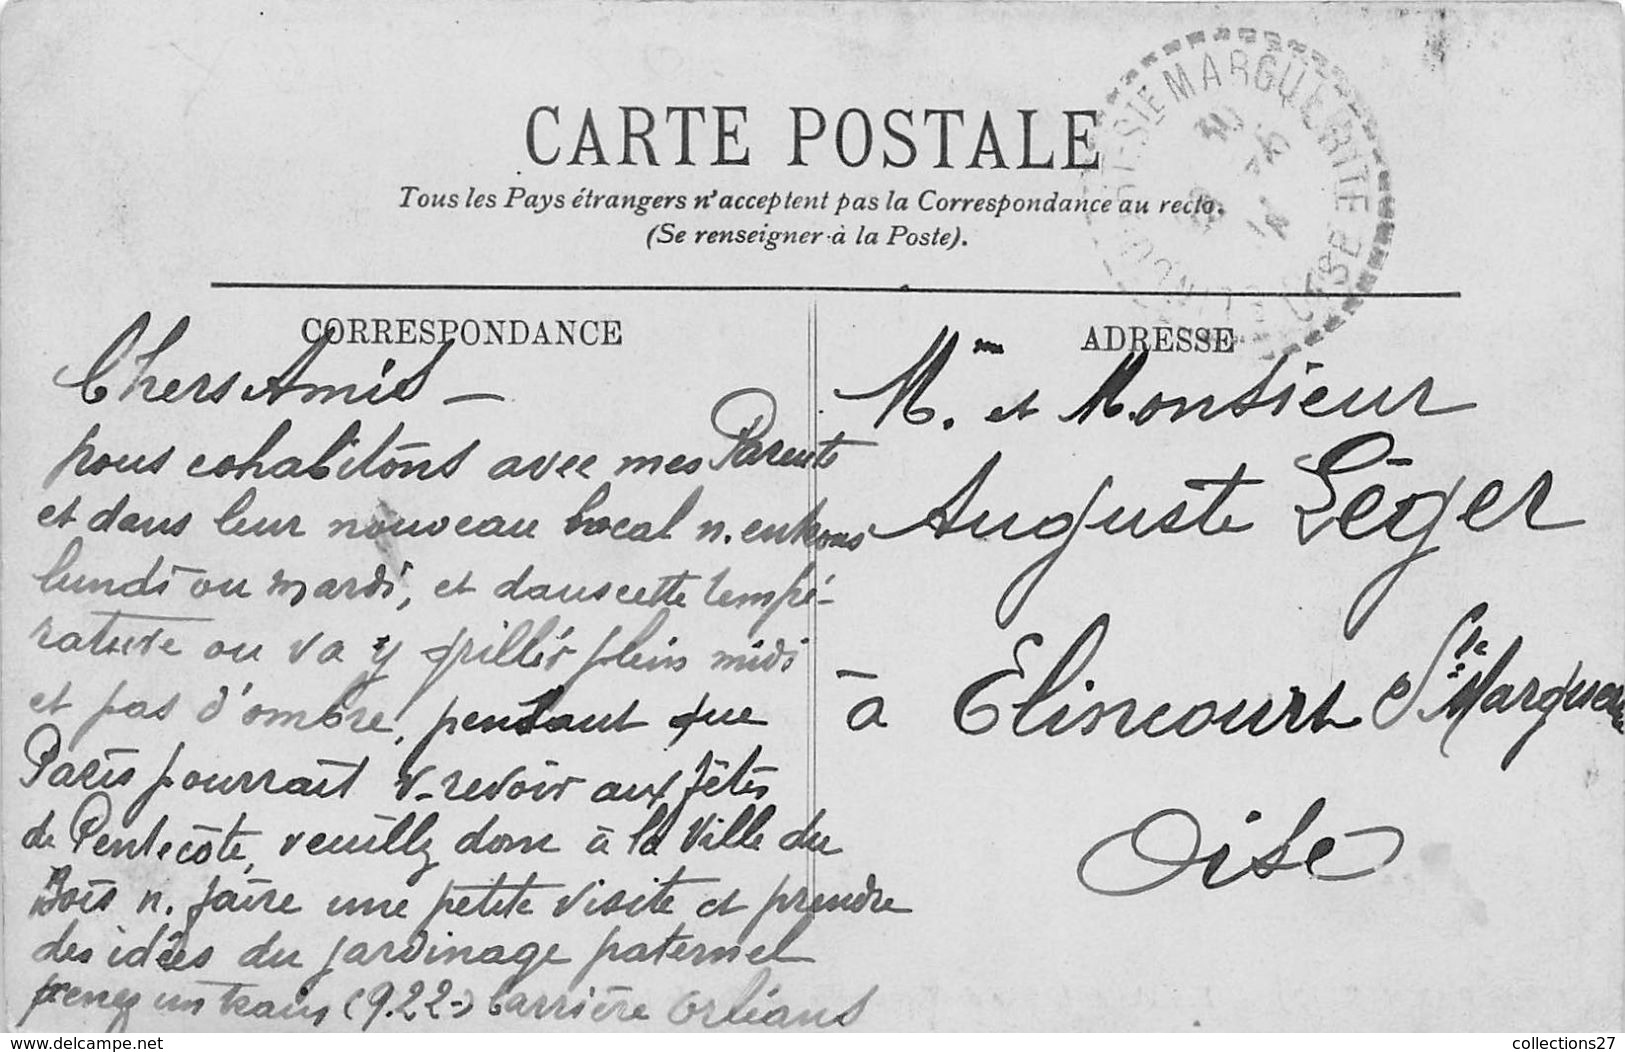 CARTE POSTALE
Tous les Pays étrangers n'acceptent pas la Correspondance au recto.
(Se renseigner à la Poste).
STE MARGUERITE
OISE
CORRESPONDANCE
Chers Amis —
nous cohabitons avec mes Parents
et dans leur nouveau local n. entrons
lundi ou mardi, et dans cette tempé-
rature on va y griller plein midi
et pas d'ombre, pendant que
Paris pourrait v. revoir aux fêtes
de Pentecôte, veuillez donc à la Ville du
Bois n. faire une petite visite et prendre
des idées du jardinage paternel
prenez un train (9.22-) barrière Orléans
ADRESSE
Mme. et Monsieur
Auguste Léger
à Elincourt Ste Marguerite
Oise
collections27